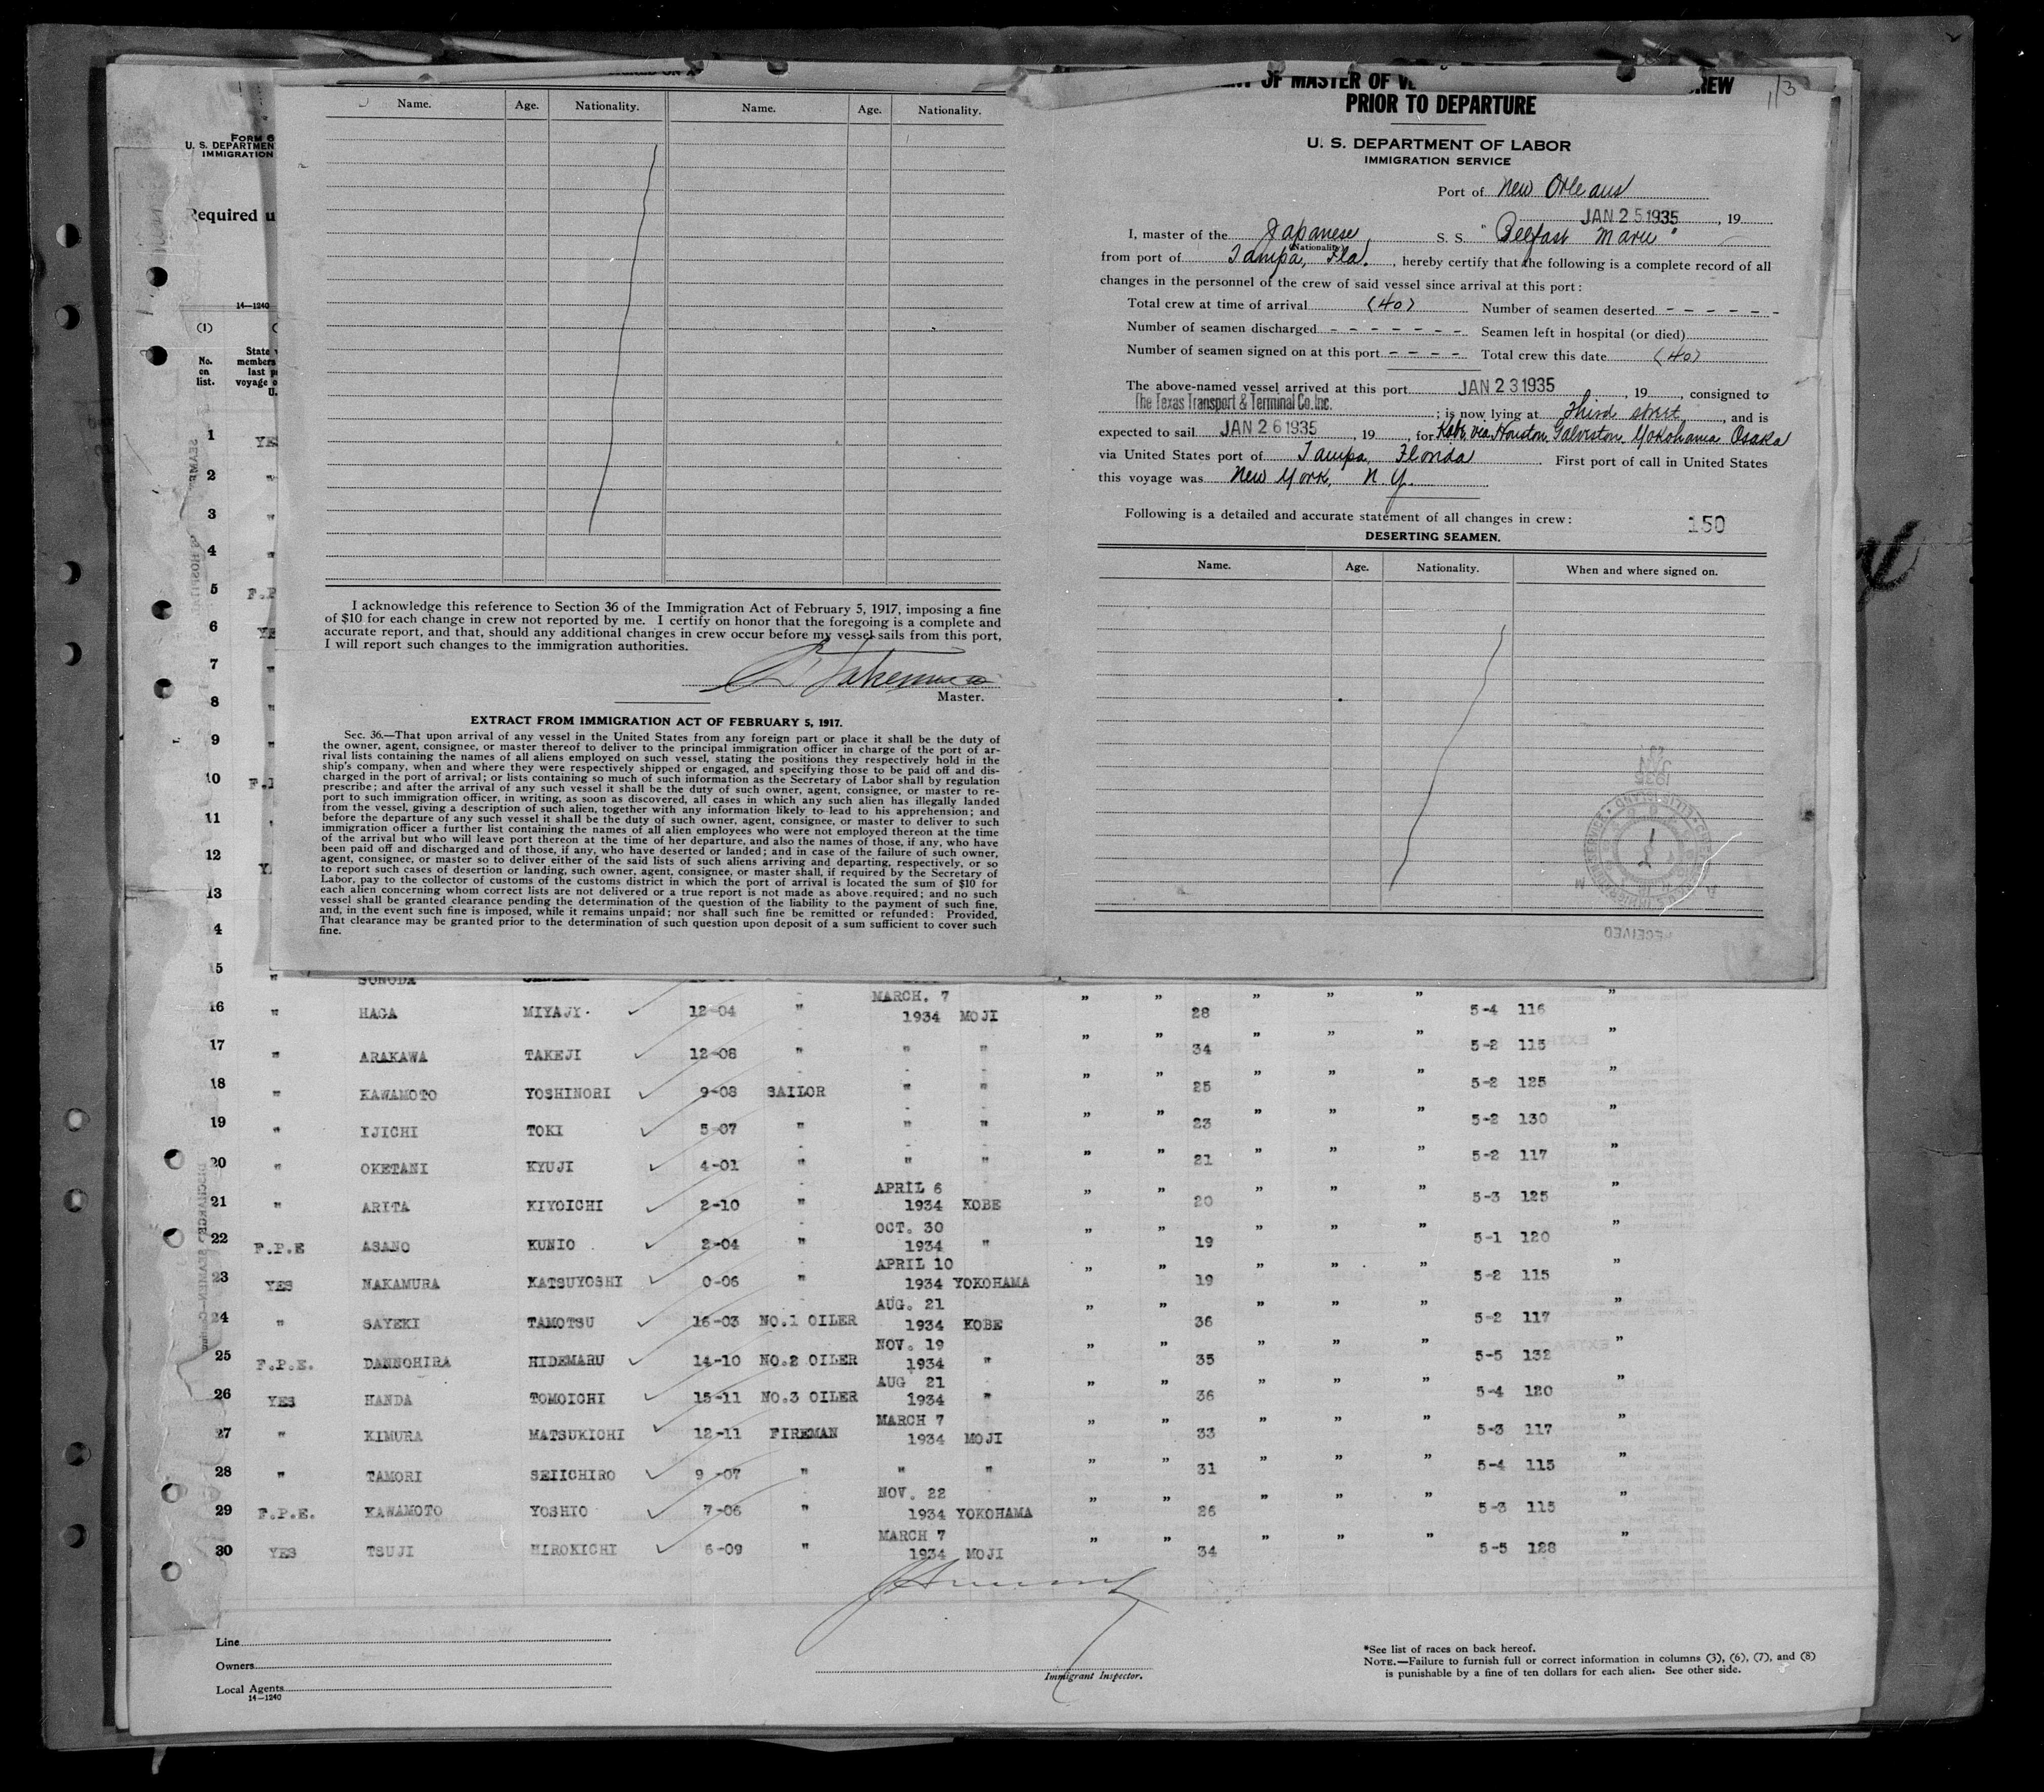 Name. Age. Nationality. Name. Age. Nationality.
I acknowledge this reference to Section 36 of the Immigration Act of February 5, 1917, imposing a fine
of $10 for each change in crew not reported by me. I certify on honor that the foregoing is a complete and
accurate report, and that, should any additional changes in crew occur before my vessel sails from this port,
I will report such changes to the immigration authorities.
Master.
EXTRACT FROM IMMIGRATION ACT OF FEBRUARY 5, 1917.
Sec. 36.—That upon arrival of any vessel in the United States from any foreign part or place it shall be the duty of
the owner, agent, consignee, or master thereof to deliver to the principal immigration officer in charge of the port of ar-
rival lists containing the names of all aliens employed on such vessel, stating the positions they respectively hold in the
ship's company, when and where they were respectively shipped or engaged, and specifying those to be paid off and dis-
charged in the port of arrival; or lists containing so much of such information as the Secretary of Labor shall by regulation
prescribe; and after the arrival of any such vessel it shall be the duty of such owner, agent, consignee, or master to re-
port to such immigration officer, in writing, as soon as discovered, all cases in which any such alien has illegally landed
from the vessel, giving a description of such alien, together with any information likely to lead to his apprehension; and
before the departure of any such vessel it shall be the duty of such owner, agent, consignee, or master to deliver to such
immigration officer a further list containing the names of all alien employees who were not employed thereon at the time
of the arrival but who will leave port thereon at the time of her departure, and also the names of those, if any, who have
been paid off and discharged and of those, if any, who have deserted or landed; and in case of the failure of such owner,
agent, consignee, or master so to deliver either of the said lists of such aliens arriving and departing, respectively, or so
to report such cases of desertion or landing, such owner, agent, consignee, or master shall, if required by the Secretary of
Labor, pay to the collector of customs of the customs district in which the port of arrival is located the sum of $10 for
each alien concerning whom correct lists are not delivered or a true report is not made as above required; and no such
vessel shall be granted clearance pending the determination of the question of the liability to the payment of such fine,
and, in the event such fine is imposed, while it remains unpaid; nor shall such fine be remitted or refunded: Provided,
That clearance may be granted prior to the determination of such question upon deposit of a sum sufficient to cover such
fine.
OF MASTER OF
PRIOR TO DEPARTURE
U. S. DEPARTMENT OF LABOR
IMMIGRATION SERVICE
Port of New Orleans
JAN 25 1935, 19
I, master of the Japanese S. S. "Belfast Maru"
(Nationality)
from port of Tampa, Fla., hereby certify that the following is a complete record of all
changes in the personnel of the crew of said vessel since arrival at this port:
Total crew at time of arrival (40) Number of seamen deserted - - - - - -
Number of seamen discharged - - - - - - - Seamen left in hospital (or died)
Number of seamen signed on at this port - - - - Total crew this date (40)
The above-named vessel arrived at this port JAN 23 1935, 19, consigned to
The Texas Transport & Terminal Co. Inc.; is now lying at Third street, and is
expected to sail JAN 26 1935, 19, for Kobe via Houston, Galveston, Yokohama Osaka
via United States port of Tampa, Florida. First port of call in United States
this voyage was New York, N.Y.
Following is a detailed and accurate statement of all changes in crew: 150
DESERTING SEAMEN.
Name. Age. Nationality. When and where signed on.
FORM 6
U. S. DEPARTMEN
IMMIGRATION
Required u
14—1240
(1)
No. on list.
1 YES
2 "
3 "
4 "
5 F.P
6 YE
7 "
8 "
9 "
10
11
12 Y
13
4
15 " SONODA
16 " HAGA MIYAJY. 12-04 " MARCH. 7 1934 MOJI " " 28 " " " 5-4 116 "
17 " ARAKAWA TAKEJI 12-08 " " " " " 34 " " " 5-2 115 "
18 " KAWAMOTO YOSHINORI 9-08 SAILOR " " " " 25 " " " 5-2 125 "
19 " IJICHI TOKI 5-07 " " " " " 23 " " " 5-2 130 "
20 " OKETANI KYUJI 4-01 " " " " " 21 " " " 5-2 117 "
21 " ARITA KIYOICHI 2-10 " APRIL 6 1934 KOBE " " 20 " " " 5-3 125 "
22 F.P.E ASANO KUNIO 2-04 " OCT. 30 1934 " " " 19 " " " 5-1 120 "
23 YES NAKAMURA KATSUYOSHI 0-06 " APRIL 10 1934 YOKOHAMA " " 19 " " " 5-2 115 "
24 " SAYEKI TAMOTSU 16-03 NO.1 OILER AUG. 21 1934 KOBE " " 36 " " " 5-2 117 "
25 F.P.E. DANNOHIRA HIDEMARU 14-10 NO.2 OILER NOV. 19 1934 " " " 35 " " " 5-5 132 "
26 YES HANDA TOMOICHI 15-11 NO.3 OILER AUG 21 1934 " " " 36 " " " 5-4 120 "
27 " KIMURA MATSUKICHI 12-11 FIREMAN MARCH 7 1934 MOJI " " 33 " " " 5-3 117 "
28 " TAMORI SEIICHIRO 9-07 " " " " " 31 " " " 5-4 115 "
29 F.P.E. KAWAMOTO YOSHIO 7-06 " NOV. 22 1934 YOKOHAMA " " 26 " " " 5-3 115 "
30 YES TSUJI HIROKICHI 6-09 " MARCH 7 1934 MOJI " " 34 " " " 5-5 128 "
Line
Owners
Local Agents
14—1240
Immigrant Inspector.
*See list of races on back hereof.
NOTE.—Failure to furnish full or correct information in columns (3), (6), (7), and (8)
is punishable by a fine of ten dollars for each alien. See other side.